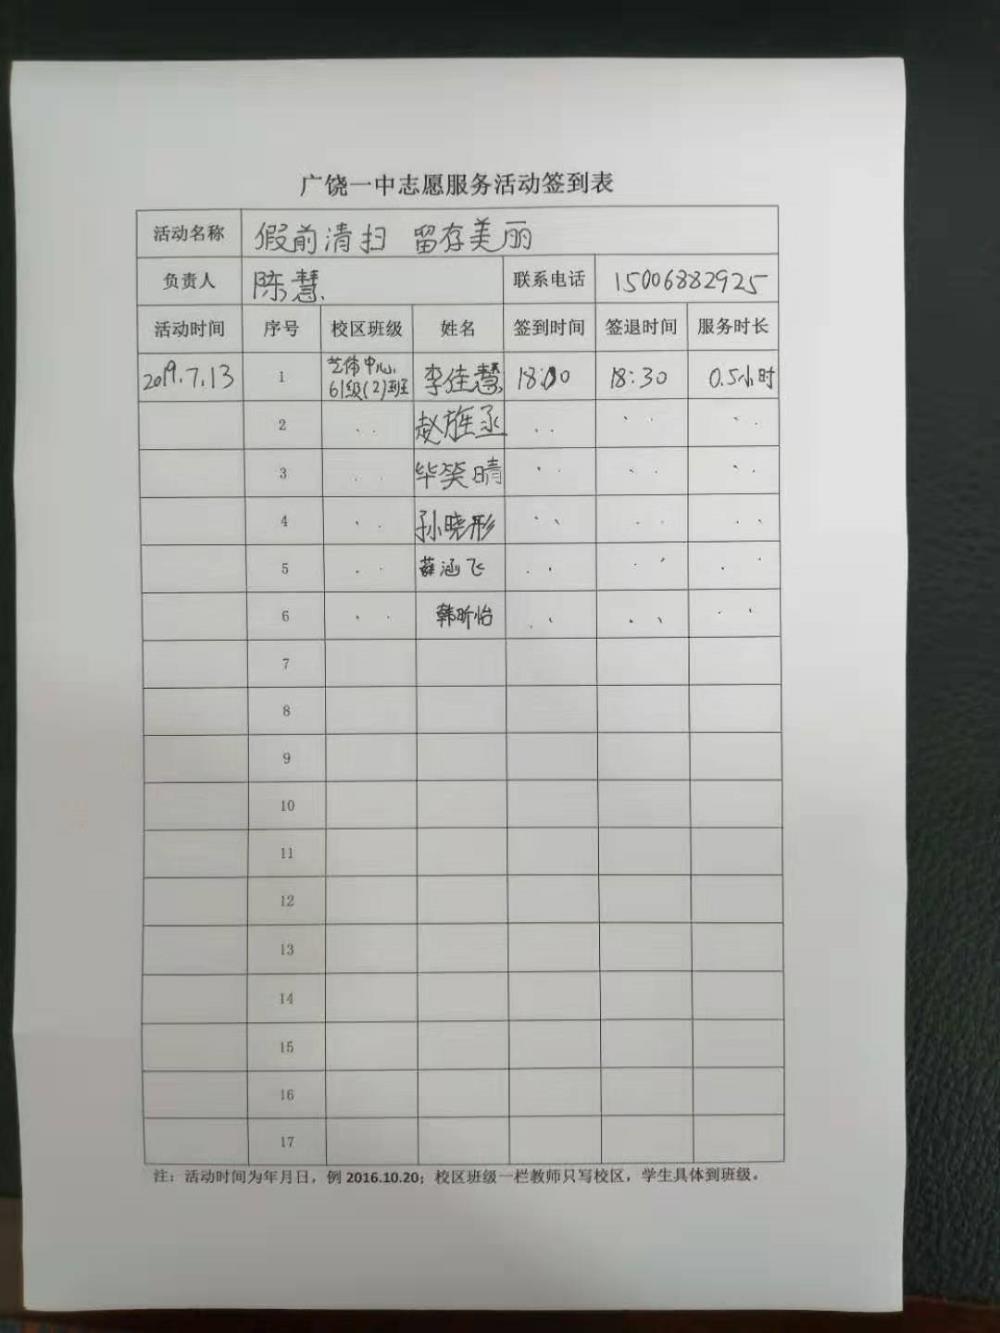 广饶一中志愿服务活动签到表
活动名称 假前清扫 留存美丽
负责人 陈慧 联系电话 15006882925
活动时间 序号 校区班级 姓名 签到时间 签退时间 服务时长
2019.7.13 1 艺体中心 61级(2)班 李佳慧 18:00 18:30 0.5小时
2 〃 赵旌丞 〃 〃 〃
3 〃 毕笑晴 〃 〃 〃
4 〃 孙晓彤 〃 〃 〃
5 〃 薛涵飞 〃 〃 〃
6 〃 韩昕怡 〃 〃 〃
7
8
9
10
11
12
13
14
15
16
17
注：活动时间为年月日，例 2016.10.20；校区班级一栏教师只写校区，学生具体到班级。